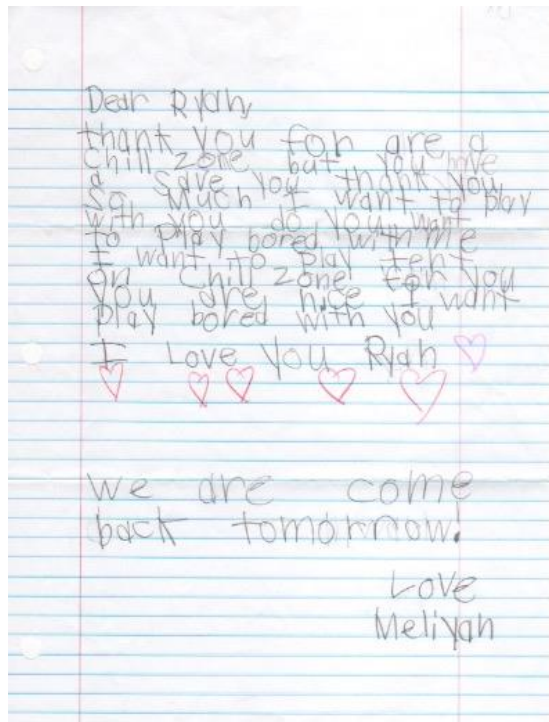 Dear Ryan,
thank you for are a
Chill zone but you have
a save you thank you
so Much I want to play
with you do you want
to play bored with me
I want to play tent
on Chill zone for you
you are nice I want
play bored with you
I Love you Ryan
we are come
back tomorrow.
Love
Meliyah